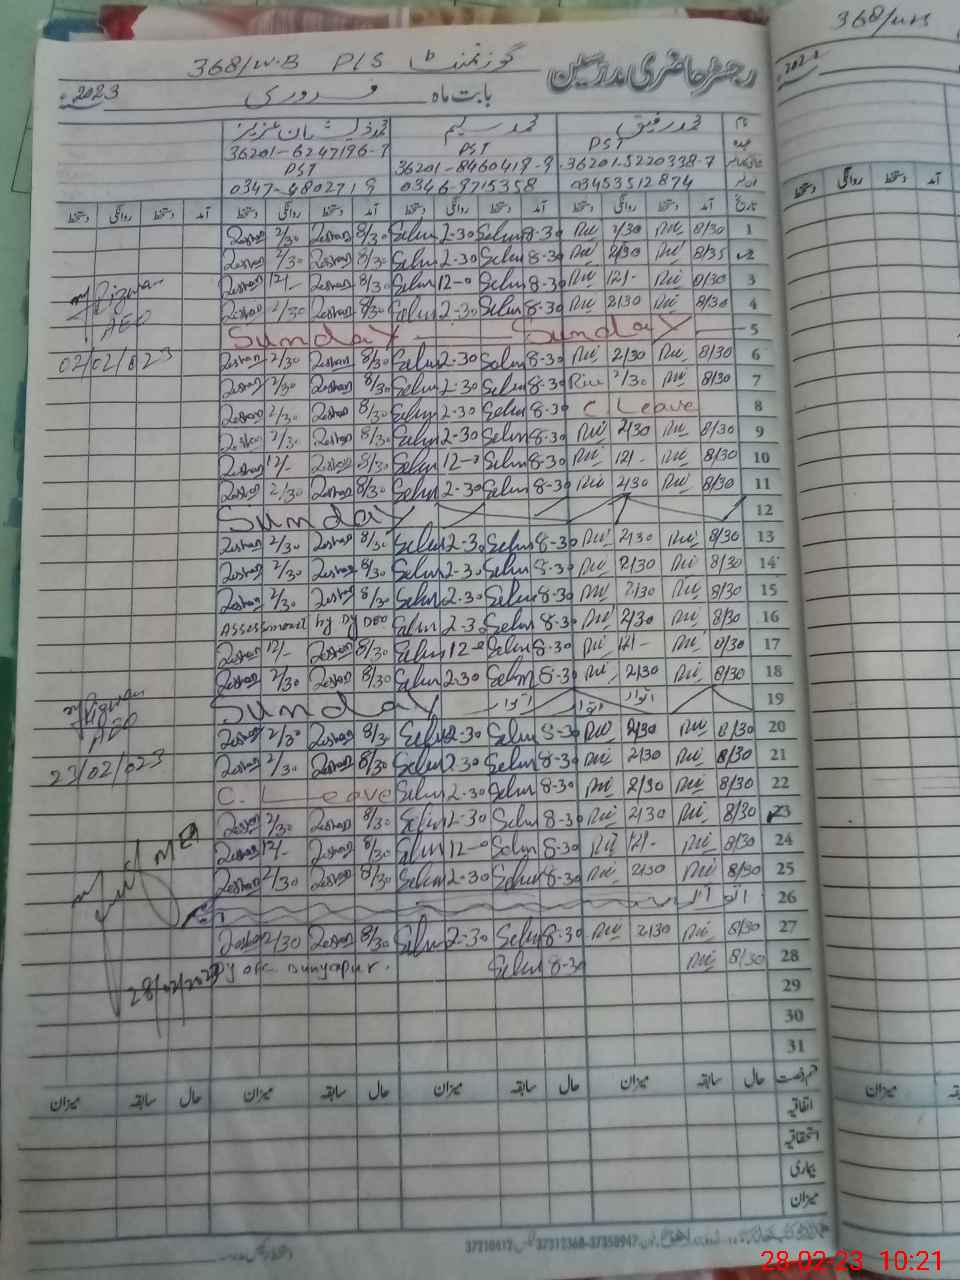 368/W.B P/S گورنمنٹ رجسٹر حاضری مدرسین
2023 بابت ماہ فروری
محمد ذیشان عزیز محمد سلیم محمد رفیق نام
36201-6247196-9 PST PST عہدہ
PST 36201-8460419-9 36201-5220338-7
0347-4802719 0346-9715358 03453512874
دستخط روانگی دستخط آمد دستخط روانگی دستخط آمد دستخط روانگی دستخط آمد دستخط روانگی دستخط آمد تاریخ
Zeshan 2/30 Zeshan 8/30 Selim 2-30 Selim 8-30 2/30 8/30 1
Zeshan 2/30 Zeshan 8/30 Selim 2-30 Selim 8-30 2/30 8/35 2
Zeshan 12/- Zeshan 8/30 Selim 12-0 Selim 8-30 12/- 8/30 3
Zeshan 2/30 Zeshan 8/30 Selim 2-30 Selim 8-30 2/30 8/30 4
AEO
Sunday Sunday 5
02/02/023 Zeshan 2/30 Zeshan 8/30 Selim 2-30 Selim 8-30 2/30 8/30 6
Zeshan 2/30 Zeshan 8/30 Selim 2-30 Selim 8-30 2/30 8/30 7
Zeshan 2/30 Zeshan 8/30 Selim 2-30 Selim 8-30 C Leave 8
Zeshan 2/30 Zeshan 8/30 Selim 2-30 Selim 8-30 2/30 8/30 9
Zeshan 12/- Zeshan 8/30 Selim 12-0 Selim 8-30 12/- 8/30 10
Zeshan 2/30 Zeshan 8/30 Selim 2-30 Selim 8-30 2/30 8/30 11
Sunday 12
Zeshan 2/30 Zeshan 8/30 Selim 2-30 Selim 8-30 2/30 8/30 13
Zeshan 2/30 Zeshan 8/30 Selim 2-30 Selim 8-30 2/30 8/30 14
Zeshan 2/30 Zeshan 8/30 Selim 2-30 Selim 8-30 2/30 8/30 15
Assessment by Dy DEO Selim 2-30 Selim 8-30 2/30 8/30 16
Zeshan 12/- Zeshan 8/30 Selim 12-0 Selim 8-30 12/- 8/30 17
Zeshan 2/30 Zeshan 8/30 Selim 2-30 Selim 8-30 2/30 8/30 18
Sunday اتوار اتوار اتوار 19
AEO Zeshan 2/30 Zeshan 8/30 Selim 2-30 Selim 8-30 2/30 8/30 20
23/02/023 Zeshan 2/30 Zeshan 8/30 Selim 2-30 Selim 8-30 2/30 8/30 21
C. Leave Selim 2-30 Selim 8-30 2/30 8/30 22
Zeshan 2/30 Zeshan 8/30 Selim 2-30 Selim 8-30 2/30 8/30 23
Zeshan 12/- Zeshan 8/30 Selim 12-0 Selim 8-30 12/- 8/30 24
Zeshan 2/30 Zeshan 8/30 Selim 2-30 Selim 8-30 2/30 8/30 25
اتوار 26
Zeshan 2/30 Zeshan 8/30 Selim 2-30 Selim 8-30 2/30 8/30 27
Dunyapur. Selim 8-30 8/30 28
28/02/2023 29
30
31
میزان سابقہ حال میزان سابقہ حال میزان سابقہ حال میزان سابقہ حال قسم رخصت
اتفاقیہ
استحقاقیہ
بیماری
میزان
368/WB
2023
دستخط روانگی دستخط آمد
میزان
28-02-23 10:21